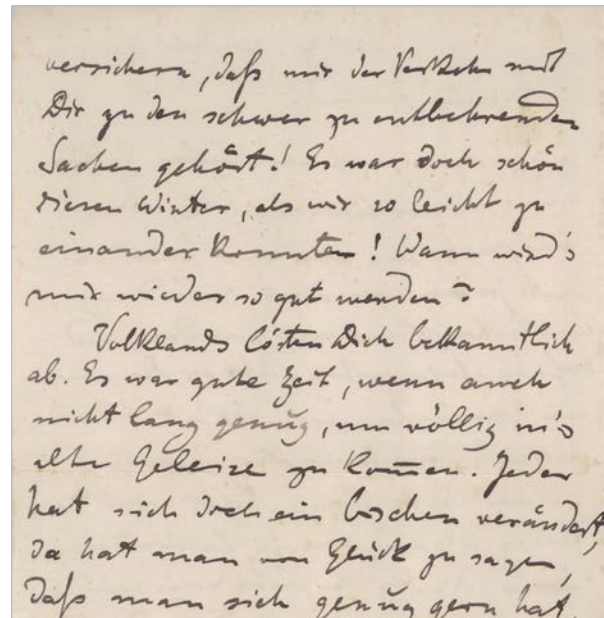 versichern, daß mir der Verkehr mit
Dir zu den schwer zu entbehrenden
Sachen gehört! Es war doch schön
diesen Winter, als wir so leicht zu
einander konnten! Wann wird's
mir wieder so gut werden?
Volklands lösten Dich bekanntlich
ab. Es war gute Zeit, wenn auch
nicht lang genug, um völlig in's
alte Geleise zu kom̄en. Jeder
hat sich doch ein bischen verändert,
da hat man von Glück zu sagen,
daß man sich genug gern hat,